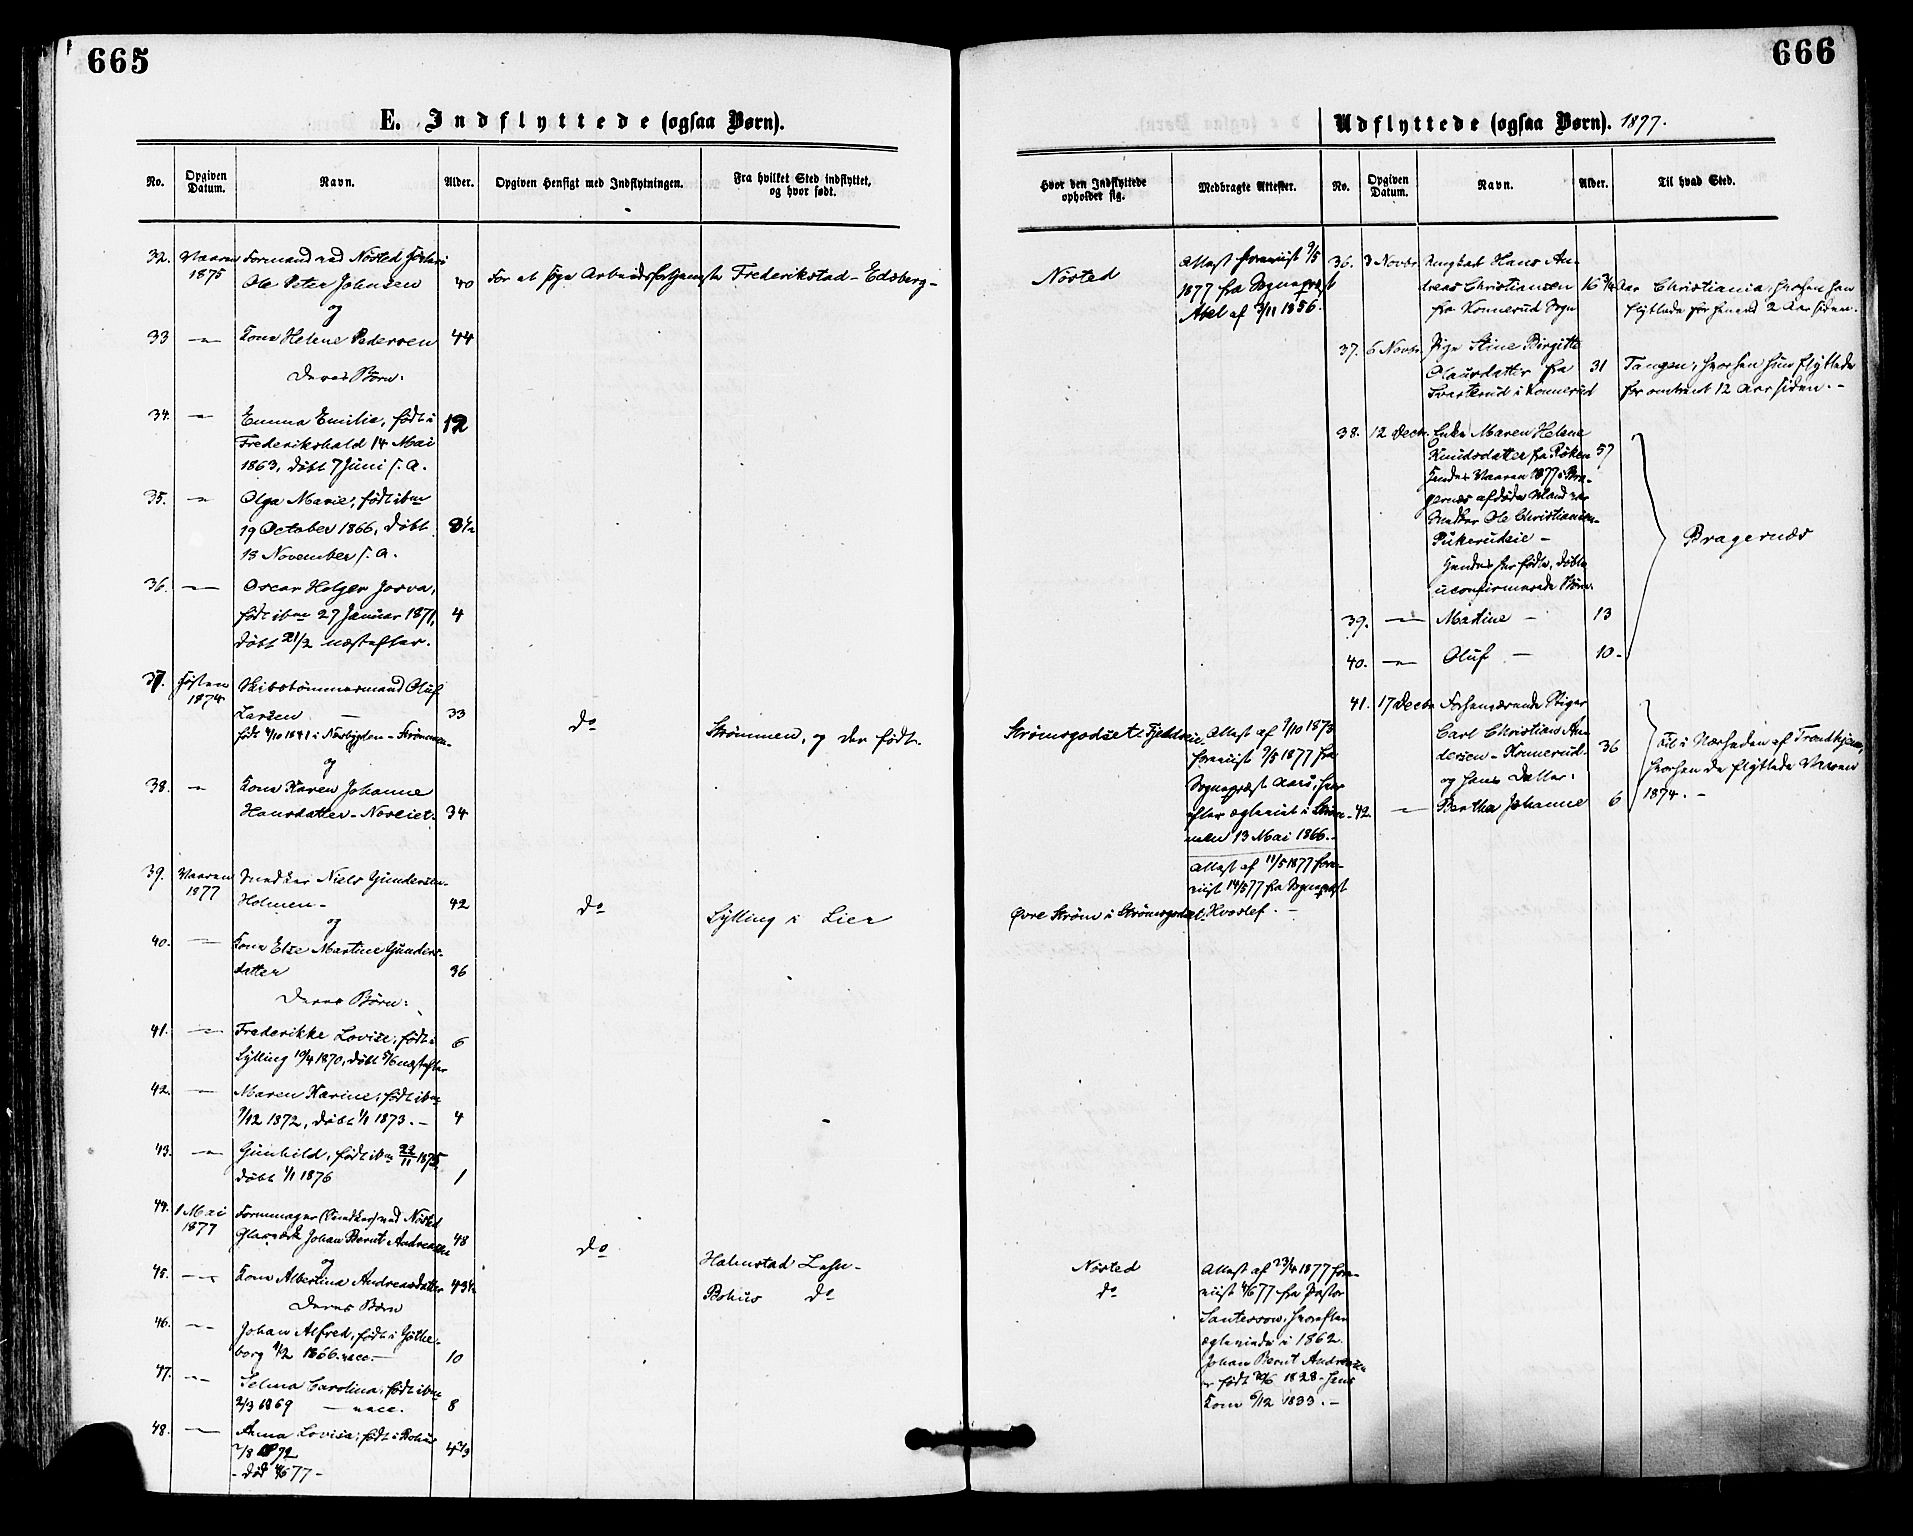 665
E. Indflyttede (ogsaa Børn).
No.
Opgiven Datum.
Navn.
Alder.
Opgiven Hensigt med Indflytningen.
Fra hvilket Sted indflyttet, og hvor født.
32. Vaaren 1875
Formand ved Nøsted
Ole Peter Johnsen 40 For at søge Arbeidsfortjeneste Frederikstad - Edsberg -
og
33 Kone Helene Pedersen 44
Deres Børn:
34. Emma Emilie, født i 12
Frederikshald 14 Mai
1863, døbt 7 Juni s. A.
35. Olga Marie, født ibm
19 October 1866, døbt 8½
13 November s. A.
36. Oscar Holger Josva,
født ibm 27 Januar 1871, 4
døbt 21/2 næstefter.
37. Høsten 1874
Skibstømmermand Oluf
Larsen 33 do Strømmen, og der født.
og
38. Kone Karen Johanne
Hansdatter - Noreiet. 34
39. Vaaren 1877
Snedker Niels Gundersen
Holmen - 42 do Sylling i Lier
og
40. Kone Else Martine Gunders-
datter 36
Deres Børn:
41. Frederikke Lovise, født i 6
Sylling 19/4 1870, døbt 5/6 næstefter
42. Maren Karine, født ibm
7/12 1872, døbt 1/1 1873. - 4
43. Gunhild, født ibm 22/11 1875
døbt 1/1 1876 1
44. 1 Mai 1877
Formmager (Snedker) ved Nøsted
Glasværk Johan Bernt Andreasen 48 do
og Halmstad Lehn -
45. Kone Albertina Andreasdatter 43½
Deres Børn Bohus do
46. Johan Alfred, født i Gøthe-
borg 1866. vacc. - 10
47. Selma Carolina, født ibm
2/3 1869 - vacc. 8
48. Anna Lovisa, født i Bohus
1872
- død 77 -
666
Udflyttede (ogsaa Børn). 1877.
Hvor den Indflyttede opholder sig.
Medbragte Attester.
No.
Opgiven Datum.
Navn.
Alder.
Til hvad Sted.
Nøsted
Attest forevist 9/5
1877 fra Sognepræst
Abel af 3/11 1856.
36. 3 Novbr. Ungkarl Hans An-
dreas Christiansen 16 3/4 Aar Christiania, hvorhen han
fra Konnerud Sogn flyttede for henved 2 Aar siden.
37. 6 Novbr. Pige Stine Birgitte
Olausdatter fra 31 Tangen, hvorhen hun flyttede
i Konnerud for omtrent 12 Aar siden. -
38. 12 Decbr. Enke Maren Helene
Knudsdatter fra Røken 57
Hendes Vaaren 1877 i Bra-
gernæs afdøde Mand var
Snedker Ole Christiansen
Pukerudeie - Bragernæs
Hendes her fødte, døbte
uconfirmerede Børn.
39. Martine - 13
40. Oluf - 10 -
41. 17 Decbr. Forhenværende Stiger
Carl Christian An-
dersen - Konnerud - 36 Til i Nærheden af Trondhjem,
og hans Datter: hvorhen de flyttede Vaaren
42. Bertha Johanne 6 1874. -
Strømsgodset
Attest af 7/10 1873
forevist 9/5 1877 fra
Sognepræst Aars, hvor-
efter ægteviet i Strøm-
men 13 Mai 1866. -
Attest af 11/5 1877 fore-
vist 14/5 77 fra Sognepræst
Øvre Strøm i Strømsgodset. Hvoslef. -
Nøsted
do
Attest af 23/4 1877 fore-
vist 77 fra Pastor
Santesson, hvorefter
ægteviede i 1862.
Johan Bernt Andreasen
er født 1828 - hans
Kone 6/12 1833. -